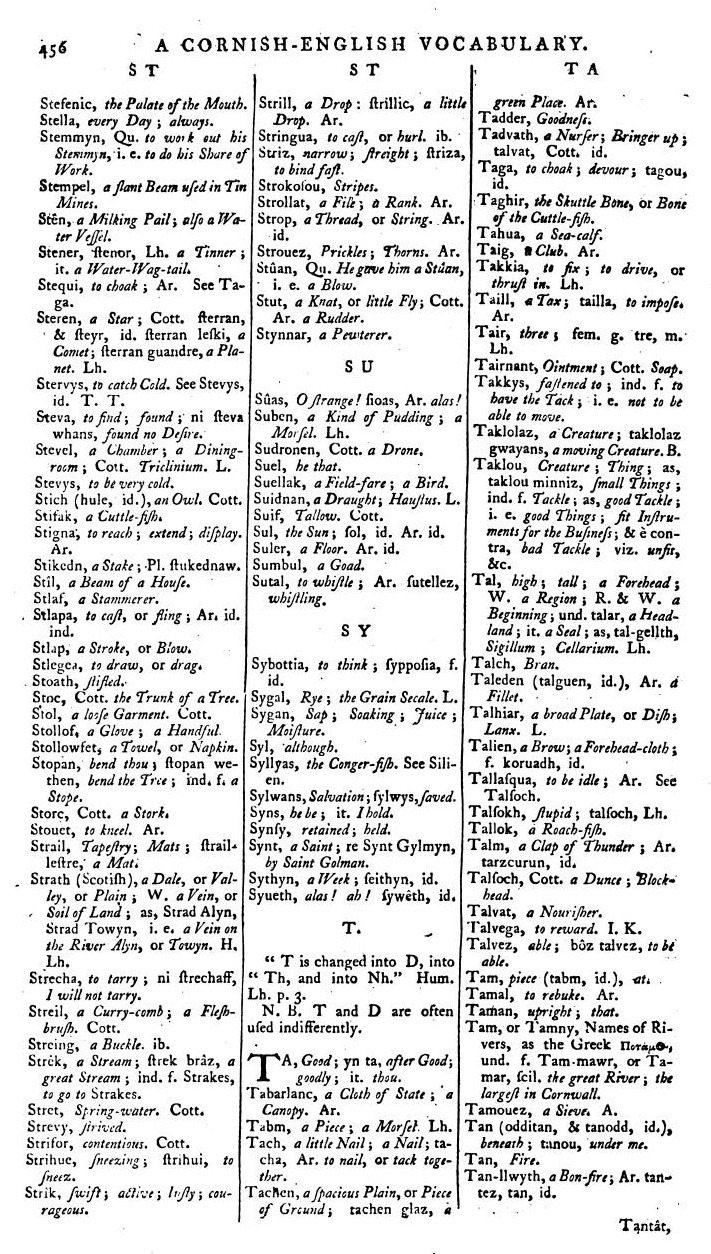 456
A CORNISH-ENGLISH VOCABULARY.
S T
Stefenic, the Palate of the Mouth.
Stella, every Day; always.
Stemmyn, Qu. to work out his
Stemmyn, i. e. to do his Share of
Work.
Stempel, a ſlant Beam uſed in Tin
Mines.
Stên, a Milking Pail; alſo a Wa-
ter Veſſel.
Stener, ſtenor, Lh. a Tinner;
it. a Water-Wag-tail.
Stequi, to choak; Ar. See Ta-
ga.
Steren, a Star; Cott. ſterran,
& ſteyr, id. ſterran leſki, a
Comet; ſterran guandre, a Pla-
net. Lh.
Stervys, to catch Cold. See Stevys,
id. T. T.
Steva, to find; found; ni ſteva
whans, found no Deſire.
Stevel, a Chamber; a Dining-
room; Cott. Triclinium. L.
Stevys, to be very cold.
Stich (hule, id.), an Owl. Cott.
Stifak, a Cuttle-fiſh.
Stigna, to reach; extend; diſplay.
Ar.
Stikedn, a Stake; Pl. ſtukednaw.
Stil, a Beam of a Houſe.
Stlaf, a Stammerer.
Stlapa, to caſt, or fling; Ar. id.
ind.
Stlap, a Stroke, or Blow.
Stlegea, to draw, or drag.
Stoath, ſtifled.
Stoc, Cott. the Trunk of a Tree.
Stol, a looſe Garment. Cott.
Stollof, a Glove; a Handful.
Stollowfet, a Towel, or Napkin.
Stopan, bend thou; ſtopan we-
then, bend the Tree; ind. f. a
Stope.
Storc, Cott. a Stork.
Stouet, to kneel. Ar.
Strail, Tapeſtry; Mats; ſtrail-
leſtre, a Mat.
Strath (Scotiſh), a Dale, or Val-
ley, or Plain; W. a Vein, or
Soil of Land; as, Strad Alyn,
Strad Towyn, i. e. a Vein on
the River Alyn, or Towyn. H.
Lh.
Strecha, to tarry; ni ſtrechaff,
I will not tarry.
Streil, a Curry-comb; a Fleſh-
bruſh. Cott.
Streing, a Buckle. ib.
Strêk, a Stream; ſtrek brâz, a
great Stream; ind. f. Strakes,
to go to Strakes.
Stret, Spring-water. Cott.
Strevy, ſtrived.
Strifor, contentious. Cott.
Strihue, ſneezing; ſtrihui, to
ſneez.
Strik, ſwift; active; luſty; cou-
rageous.
S T
Strill, a Drop: ſtrillic, a little
Drop. Ar.
Stringua, to caſt, or hurl. ib.
Striz, narrow; ſtreight; ſtriza,
to bind faſt.
Strokoſou, Stripes.
Strollat, a File; a Rank. Ar.
Strop, a Thread, or String. Ar.
id.
Strouez, Prickles; Thorns. Ar.
Stûan, Qu. He gave him a Stûan,
i. e. a Blow.
Stut, a Knat, or little Fly; Cott.
Ar. a Rudder.
Stynnar, a Pewterer.
S U
Sûas, O ſtrange! ſioas, Ar. alas!
Suben, a Kind of Pudding; a
Morſel. Lh.
Sudronen, Cott. a Drone.
Suel, he that.
Suellak, a Field-fare; a Bird.
Suidnan, a Draught; Hauſtus. L.
Suif, Tallow. Cott.
Sul, the Sun; ſol, id. Ar. id.
Suler, a Floor. Ar. id.
Sumbul, a Goad.
Sutal, to whiſtle; Ar. ſutellez,
whiſtling.
S Y
Sybottia, to think; ſyppoſia, f.
id.
Sygal, Rye; the Grain Secale. L.
Sygan, Sap; Soaking; Juice;
Moiſture.
Syl, although.
Syllyas, the Conger-fiſh. See Sili-
en.
Sylwans, Salvation; ſylwys, ſaved.
Syns, he be; it. I hold.
Synſy, retained; held.
Synt, a Saint; re Synt Gylmyn,
by Saint Golman.
Sythyn, a Week; ſeithyn, id.
Syueth, alas! ah! ſywêth, id.
T.
“ T is changed into D, into
“ Th, and into Nh.” Hum.
Lh. p. 3.
N. B. T and D are often
uſed indifferently.
TA, Good; yn ta, after Good;
goodly; it. thou.
Tabarlanc, a Cloth of State; a
Canopy. Ar.
Tabm, a Piece; a Morſel. Lh.
Tach, a little Nail; a Nail; ta-
cha, Ar. to nail, or tack toge-
ther.
Tachen, a ſpacious Plain, or Piece
of Ground; tachen glaz, a
T A
green Place. Ar.
Tadder, Goodneſs.
Tadvath, a Nurſer; Bringer up;
talvat, Cott. id.
Taga, to choak; devour; tagou,
id.
Taghir, the Skuttle Bone, or Bone
of the Cuttle-fiſh.
Tahua, a Sea-calf.
Taig, a Club. Ar.
Takkia, to fix; to drive, or
thruſt in. Lh.
Taill, a Tax; tailla, to impoſe.
Ar.
Tair, three; fem. g. tre, m.
Lh.
Tairnant, Ointment; Cott. Soap.
Takkys, faſtened to; ind. f. to
have the Tack; i. e. not to be
able to move.
Taklolaz, a Creature; taklolaz
gwayans, a moving Creature. B.
Taklou, Creature; Thing; as,
taklou minniz, ſmall Things;
ind. f. Tackle; as, good Tackle;
i. e. good Things; fit Inſtru-
ments for the Buſineſs; & è con-
tra, bad Tackle; viz. unfit,
&c.
Tal, high; tall; a Forehead;
W. a Region; R. & W. a
Beginning; und. talar, a Head-
land; it. a Seal; as, tal-gellth,
Sigillum; Cellarium. Lh.
Talch, Bran.
Taleden (talguen, id.), Ar. a
Fillet.
Talhiar, a broad Plate, or Diſh;
Lanx. L.
Talien, a Brow; a Forehead-cloth;
f. koruadh, id.
Tallaſqua, to be idle; Ar. See
Talſoch.
Talſokh, ſtupid; talſoch, Lh.
Tallok, a Roach-fiſh.
Talm, a Clap of Thunder; Ar.
tarzcurun, id.
Talſoch, Cott. a Dunce; Block-
head.
Talvat, a Nouriſher.
Talvega, to reward. I. K.
Talvez, able; bôz talvez, to be
able.
Tam, piece (tabm, id.), at.
Tamal, to rebuke. Ar.
Taman, upright; that.
Tam, or Tamny, Names of Ri-
vers, as the Greek Ποτάμος,
und. f. Tam-mawr, or Ta-
mar, ſcil. the great River; the
largeſt in Cornwall.
Tamouez, a Sieve. A.
Tan (odditan, & tanodd, id.),
beneath; tanou, under me.
Tan, Fire.
Tan-llwyth, a Bon-fire; Ar. tan-
tez, tan, id.
Tantât,